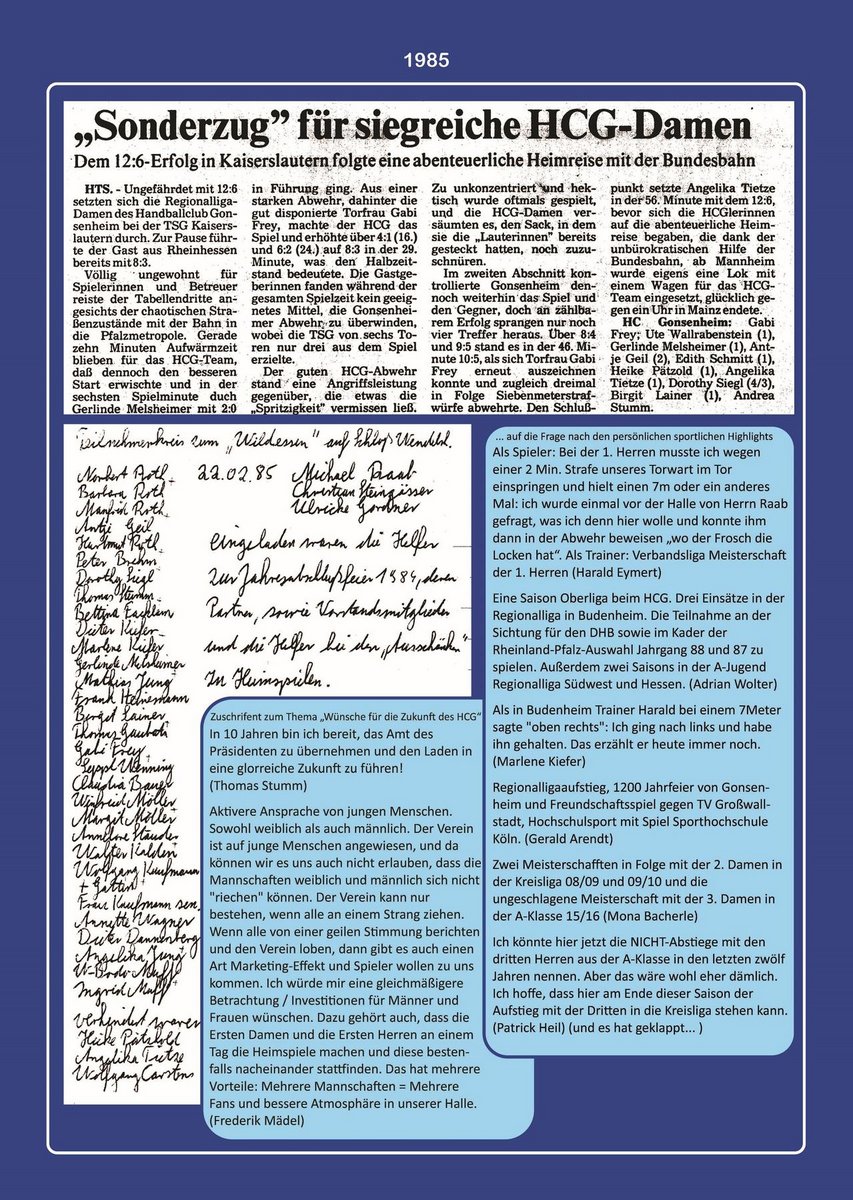 1985
„Sonderzug” für siegreiche HCG-Damen
Dem 12:6-Erfolg in Kaiserslautern folgte eine abenteuerliche Heimreise mit der Bundesbahn
HTS. - Ungefährdet mit 12:6
setzten sich die Regionalliga-
Damen des Handballclub Gon-
senheim bei der TSG Kaisers-
lautern durch. Zur Pause führ-
te der Gast aus Rheinhessen
bereits mit 8:3.
Völlig ungewohnt für
Spielerinnen und Betreuer
reiste der Tabellendritte an-
gesichts der chaotischen Stra-
ßenzustände mit der Bahn in
die Pfalzmetropole. Gerade
zehn Minuten Aufwärmzeit
blieben für das HCG-Team,
daß dennoch den besseren
Start erwischte und in der
sechsten Spielminute duch
Gerlinde Melsheimer mit 2:0
in Führung ging. Aus einer
starken Abwehr, dahinter die
gut disponierte Torfrau Gabi
Frey, machte der HCG das
Spiel und erhöhte über 4:1 (16.)
und 6:2 (24.) auf 8:3 in der 29.
Minute, was den Halbzeit-
stand bedeutete. Die Gastge-
berinnen fanden während der
gesamten Spielzeit kein geeig-
netes Mittel, die Gonsenhei-
mer Abwehr zu überwinden,
wobei die TSG von sechs To-
ren nur drei aus dem Spiel
erzielte.
Der guten HCG-Abwehr
stand eine Angriffsleistung
gegenüber, die etwas die
„Spritzigkeit” vermissen ließ.
Zu unkonzentriert und hek-
tisch wurde oftmals gespielt,
und die HCG-Damen ver-
säumten es, den Sack, in dem
sie die „Lauterinnen” bereits
gesteckt hatten, noch zuzu-
schnüren.
Im zweiten Abschnitt kon-
trollierte Gonsenheim den-
noch weiterhin das Spiel und
den Gegner, doch an zählba-
rem Erfolg sprangen nur noch
vier Treffer heraus. Über 8:4
und 9:5 stand es in der 46. Mi-
nute 10:5, als sich Torfrau Gabi
Frey erneut auszeichnen
konnte und zugleich dreimal
in Folge Siebenmeterstraf-
würfe abwehrte. Den Schluß-
punkt setzte Angelika Tietze
in der 56. Minute mit dem 12:6,
bevor sich die HCGlerinnen
auf die abenteuerliche Heim-
reise begaben, die dank der
unbürokratischen Hilfe der
Bundesbahn, ab Mannheim
wurde eigens eine Lok mit
einem Wagen für das HCG-
Team eingesetzt, glücklich ge-
gen ein Uhr in Mainz endete.
HC Gonsenheim: Gabi
Frey; Ute Wallrabenstein (1),
Gerlinde Melsheimer (1), Ant-
je Geil (2), Edith Schmitt (1),
Heike Pätzold (1), Angelika
Tietze (1), Dorothy Siegl (4/3),
Birgit Lainer (1), Andrea
Stumm.
Teilnehmerkreis zum „Wildessen” auf Schloß
22.02.85
Norbert Roth
Barbara Roth
Manfred Roth
Antje Geil
Hartmut Roth
Peter Brehm
Dorothy Siegl
Thomas Stumm
Bettina
Dieter Kiefer
Marlene Kiefer
Gerlinde Melsheimer
Mathias Jung
Frank Heinemann
Birgit Lainer
Thomas
Gabi Frey
Seppl Wenning
Claudia Bauer
Winfried Möller
Margit Möller
Annelore Stauder
Walter Kalden
Wolfgang Kaufmann
+ Gattin
Frau Kaufmann sen.
Annette Wagner
Dieter Dannenberg
Angelika Jung
Ingrid
verhindert waren
Heike Pätzold
Angelika Tietze
Wolfgang Carstens
Michael Raab
Christian Steingässer
Ulricke Gardner
eingeladen waren die Helfer
zur Jahresabschlußfeier 1984, deren
Partner, sowie Vorstandsmitglieder
und die Helfer bei den „Ausschänken”
in Heimspielen.
Zuschrifent zum Thema „Wünsche für die Zukunft des HCG“
In 10 Jahren bin ich bereit, das Amt des
Präsidenten zu übernehmen und den Laden in
eine glorreiche Zukunft zu führen!
(Thomas Stumm)
Aktivere Ansprache von jungen Menschen.
Sowohl weiblich als auch männlich. Der Verein
ist auf junge Menschen angewiesen, und da
können wir es uns auch nicht erlauben, dass die
Mannschaften weiblich und männlich sich nicht
"riechen" können. Der Verein kann nur
bestehen, wenn alle an einem Strang ziehen.
Wenn alle von einer geilen Stimmung berichten
und den Verein loben, dann gibt es auch einen
Art Marketing-Effekt und Spieler wollen zu uns
kommen. Ich würde mir eine gleichmäßigere
Betrachtung / Investitionen für Männer und
Frauen wünschen. Dazu gehört auch, dass die
Ersten Damen und die Ersten Herren an einem
Tag die Heimspiele machen und diese besten-
falls nacheinander stattfinden. Das hat mehrere
Vorteile: Mehrere Mannschaften = Mehrere
Fans und bessere Atmosphäre in unserer Halle.
(Frederik Mädel)
... auf die Frage nach den persönlichen sportlichen Highlights
Als Spieler: Bei der 1. Herren musste ich wegen
einer 2 Min. Strafe unseres Torwart im Tor
einspringen und hielt einen 7m oder ein anderes
Mal: ich wurde einmal vor der Halle von Herrn Raab
gefragt, was ich denn hier wolle und konnte ihm
dann in der Abwehr beweisen „wo der Frosch die
Locken hat“. Als Trainer: Verbandsliga Meisterschaft
der 1. Herren (Harald Eymert)
Eine Saison Oberliga beim HCG. Drei Einsätze in der
Regionalliga in Budenheim. Die Teilnahme an der
Sichtung für den DHB sowie im Kader der
Rheinland-Pfalz-Auswahl Jahrgang 88 und 87 zu
spielen. Außerdem zwei Saisons in der A-Jugend
Regionalliga Südwest und Hessen. (Adrian Wolter)
Als in Budenheim Trainer Harald bei einem 7Meter
sagte "oben rechts": Ich ging nach links und habe
ihn gehalten. Das erzählt er heute immer noch.
(Marlene Kiefer)
Regionalligaaufstieg, 1200 Jahrfeier von Gonsen-
heim und Freundschaftsspiel gegen TV Großwall-
stadt, Hochschulsport mit Spiel Sporthochschule
Köln. (Gerald Arendt)
Zwei Meisterschafften in Folge mit der 2. Damen in
der Kreisliga 08/09 und 09/10 und die
ungeschlagene Meisterschaft mit der 3. Damen in
der A-Klasse 15/16 (Mona Bacherle)
Ich könnte hier jetzt die NICHT-Abstiege mit den
dritten Herren aus der A-Klasse in den letzten zwölf
Jahren nennen. Aber das wäre wohl eher dämlich.
Ich hoffe, dass hier am Ende dieser Saison der
Aufstieg mit der Dritten in die Kreisliga stehen kann.
(Patrick Heil) (und es hat geklappt... )